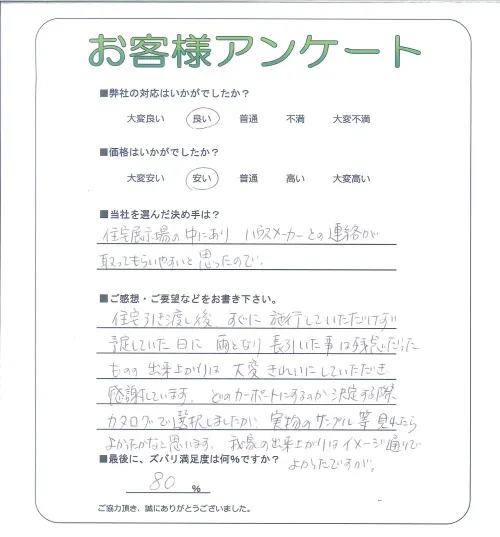 お客様アンケート
■弊社の対応はいかがでしたか？
大変良い 良い 普通 不満 大変不満
■価格はいかがでしたか？
大変安い 安い 普通 高い 大変高い
■当社を選んだ決め手は？
住宅展示場の中にあり ハウスメーカーとの連絡が
取ってもらいやすいと思ったので。
■ご感想・ご要望などをお書き下さい。
住宅引き渡し後、すぐに施行していただけず
予定していた日に 雨となり 長引いた事は残念だった
ものの 出来上がりは 大変きれいにしていただき
感謝しています。どのカーポートにするのか決定する際、
カタログで選択しましたが 実物のサンプル等見れたら
よかったかなと思います。我家の出来上がりはイメージ通りで
よかったですが。
■最後に、ズバリ満足度は何%ですか？
80 %
ご協力頂き、誠にありがとうございました。